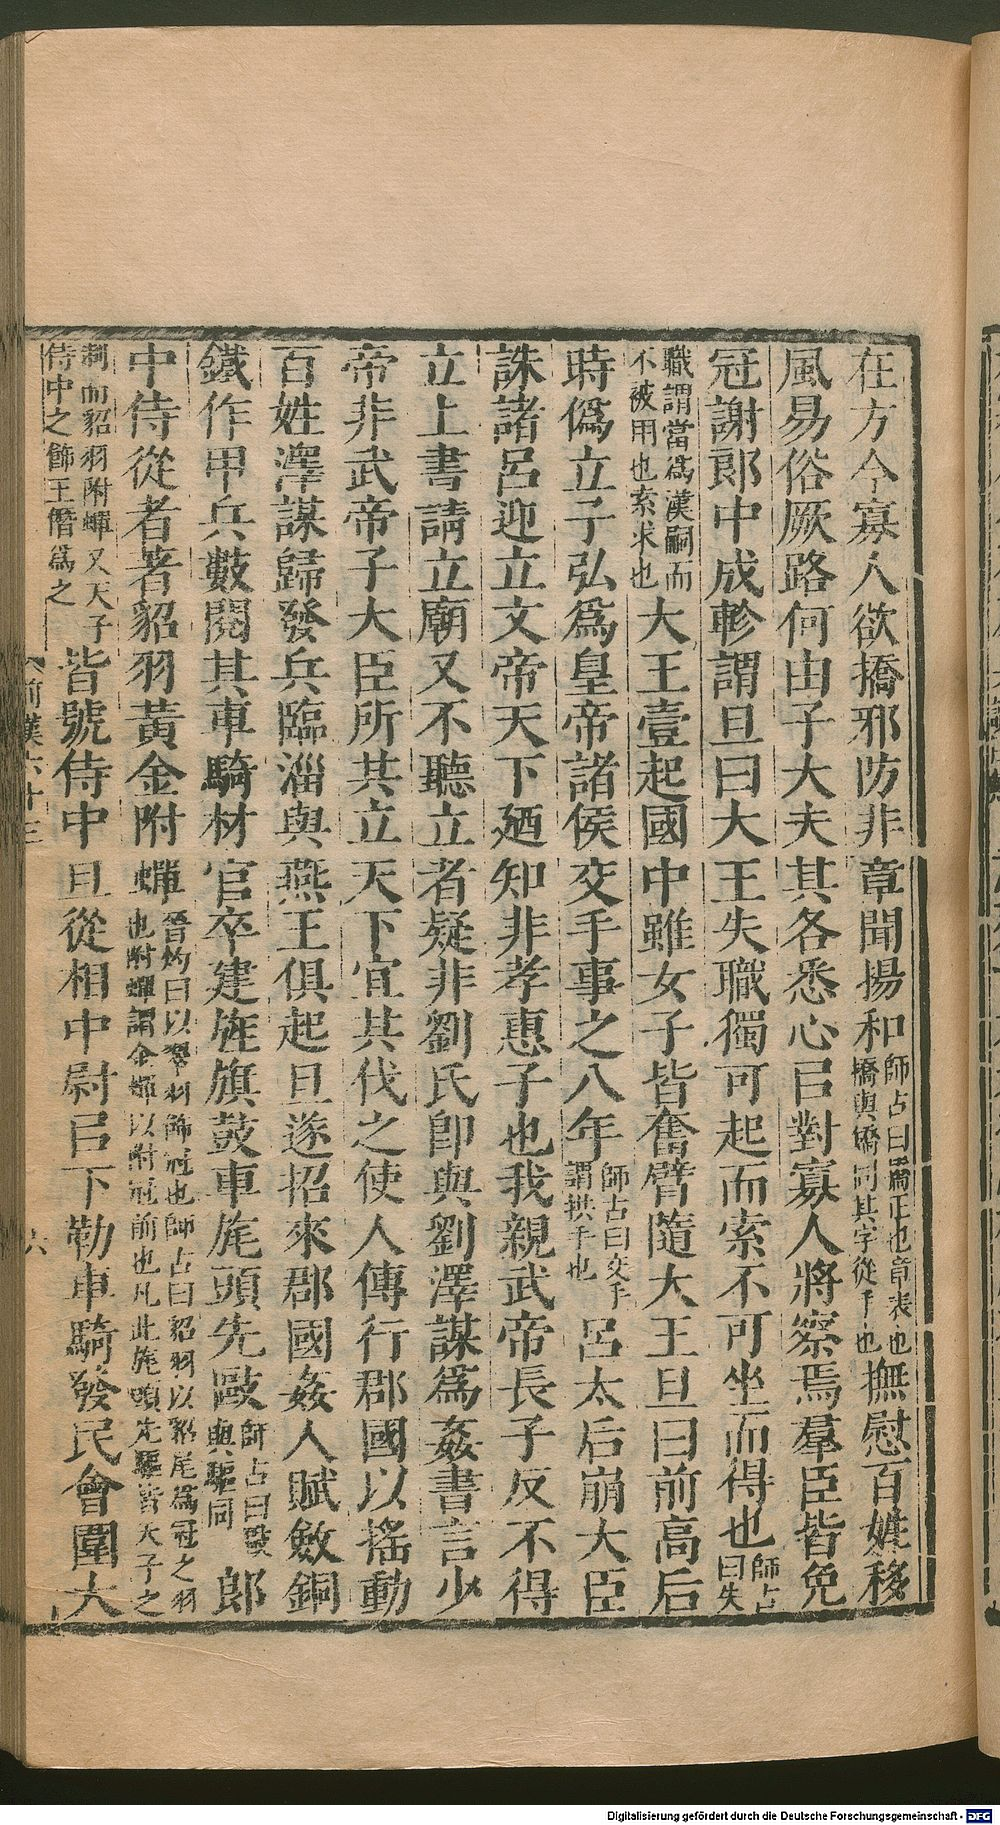 在方今寡人欲撟邪防非章聞揚和師古曰𠃔正也章表也撟與矯同其字從手也撫慰百姓移
風易俗厥路何由子大夫其各悉心㠯對寡人將察焉羣臣皆免
冠謝郎中成軫謂旦曰大王失職獨可起而索不可坐而得也師古曰失
職謂當爲漢嗣而不被用也索求也大王壹起國中雖女子皆奮臂隨大王旦曰前高后
時僞立子弘爲皇帝諸侯交手事之八年師古曰交手謂拱手也呂太后崩大臣
誅諸呂迎立文帝天下廼知非孝惠子也我親武帝長子反不得
立上書請立廟又不聽立者疑非劉氏卽與劉澤謀爲姦書言少
帝非武帝子大臣所共立天下宜共伐之使人傳行郡國以搖動
百姓澤謀歸發兵臨淄與燕王俱起旦遂招來郡國姦人賦斂銅
鐵作甲兵數閱其車騎材官卒建旌旗鼓車旄頭先敺師古曰敺與驅同郎
中侍從者著貂羽黃金附蟬晉灼曰以翠羽飾冠也師古曰貂羽以貂尾爲冠之羽也附蟬謂金蟬以附冠前也凡此旄頭先驅皆天子之
制而貂羽附蟬又天子侍中之飾王僭爲之皆號侍中旦從相中尉㠯下勒車騎發民會圍大
前漢六十三
六
Digitalisierung gefördert durch die Deutsche Forschungsgemeinschaft - DFG